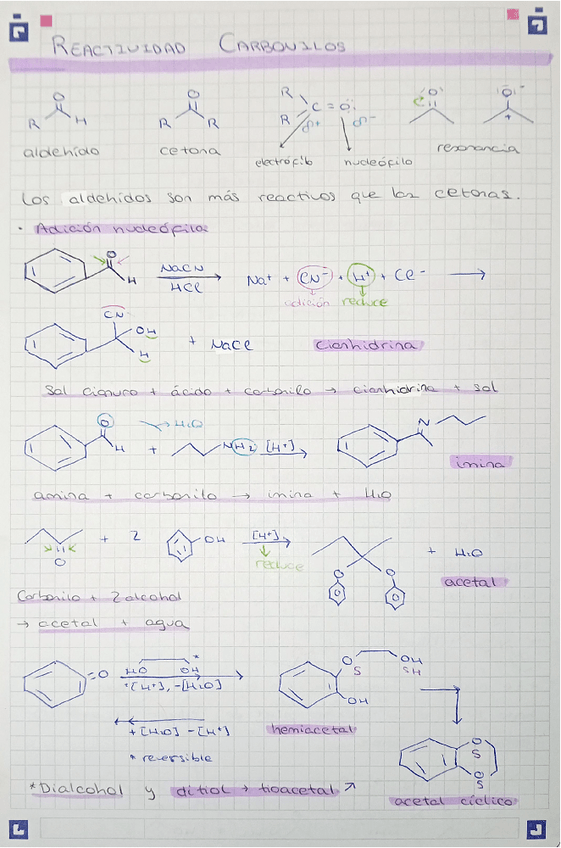 REACTIVIDAD CARBONILOS
O
R H
O
R R
R
R C = O
δ+ δ-
O
O
+
aldehído
cetona
electrófilo nucleófilo
resonancia
Los aldehídos son más reactivos que las cetonas.
· Adición nucleófila
O
H
NaCN
HCl
Na+ + CN- + H+ + Cl-
adición reduce
CN
OH
H
+ NaCl cianhidrina
Sal cianuro + ácido + carbonilo → cianhidrina + sal
O
H
→ H2O
+ NH2 [H+]
N
imina
amina + carbonilo → imina + H2O
O
+ 2 OH [H+]
reduce
O O
+ H2O
acetal
Carbonilo + 2 alcohol
→ acetal + agua
=O
HO OH *
+[H+], -[H2O]
+[H2O] -[H+]
* reversible
O OH
S SH
OH
hemiacetal
O
S
S
O
acetal cíclico
*Dialcohol y ditiol → tioacetal ↗